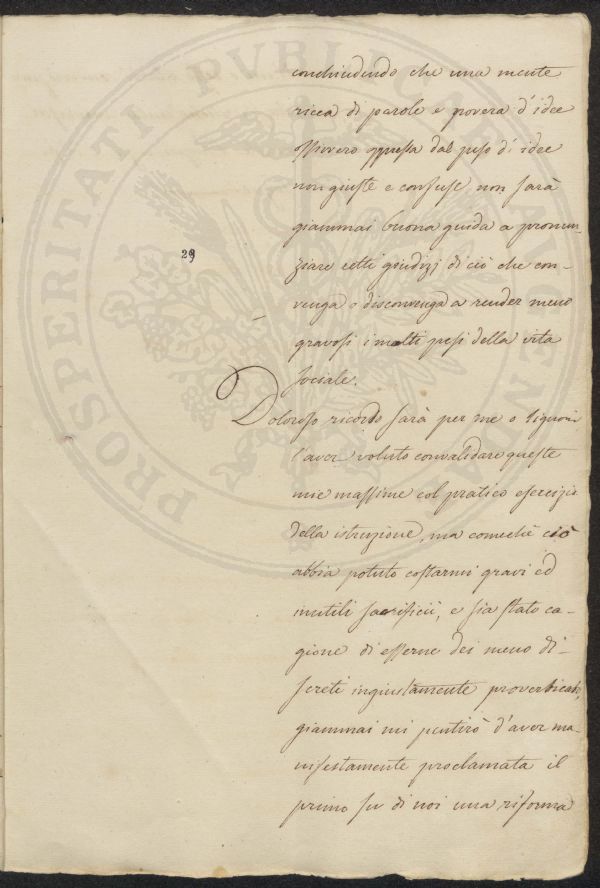 conchiudendo che una mente
ricca di parole e povera d'idee
ossivero oppressa dal peso d'idee
non giuste e confuse non sarà
giammai buona guida a pronun-
ziare retti giudizj di ciò che con-
venga o disconvenga a render meno
gravosi i molti pesi della vita
sociale.
29
Doloroso ricordo sarà per me o Signori
l'aver voluto convalidare queste
mie massime col pratico esercizio
della istruzione, ma comechè ciò
abbia potuto costarmi gravi ed
inutili sacrificii, e sia stato ca-
gione di esserne dei meno di-
screti ingiustamente proverbiato,
giammai mi pentirò d'aver ma-
nifestamente proclamata il
primo fu di noi una riforma
PROSPERITATI PVBLICAE AVGENDAE